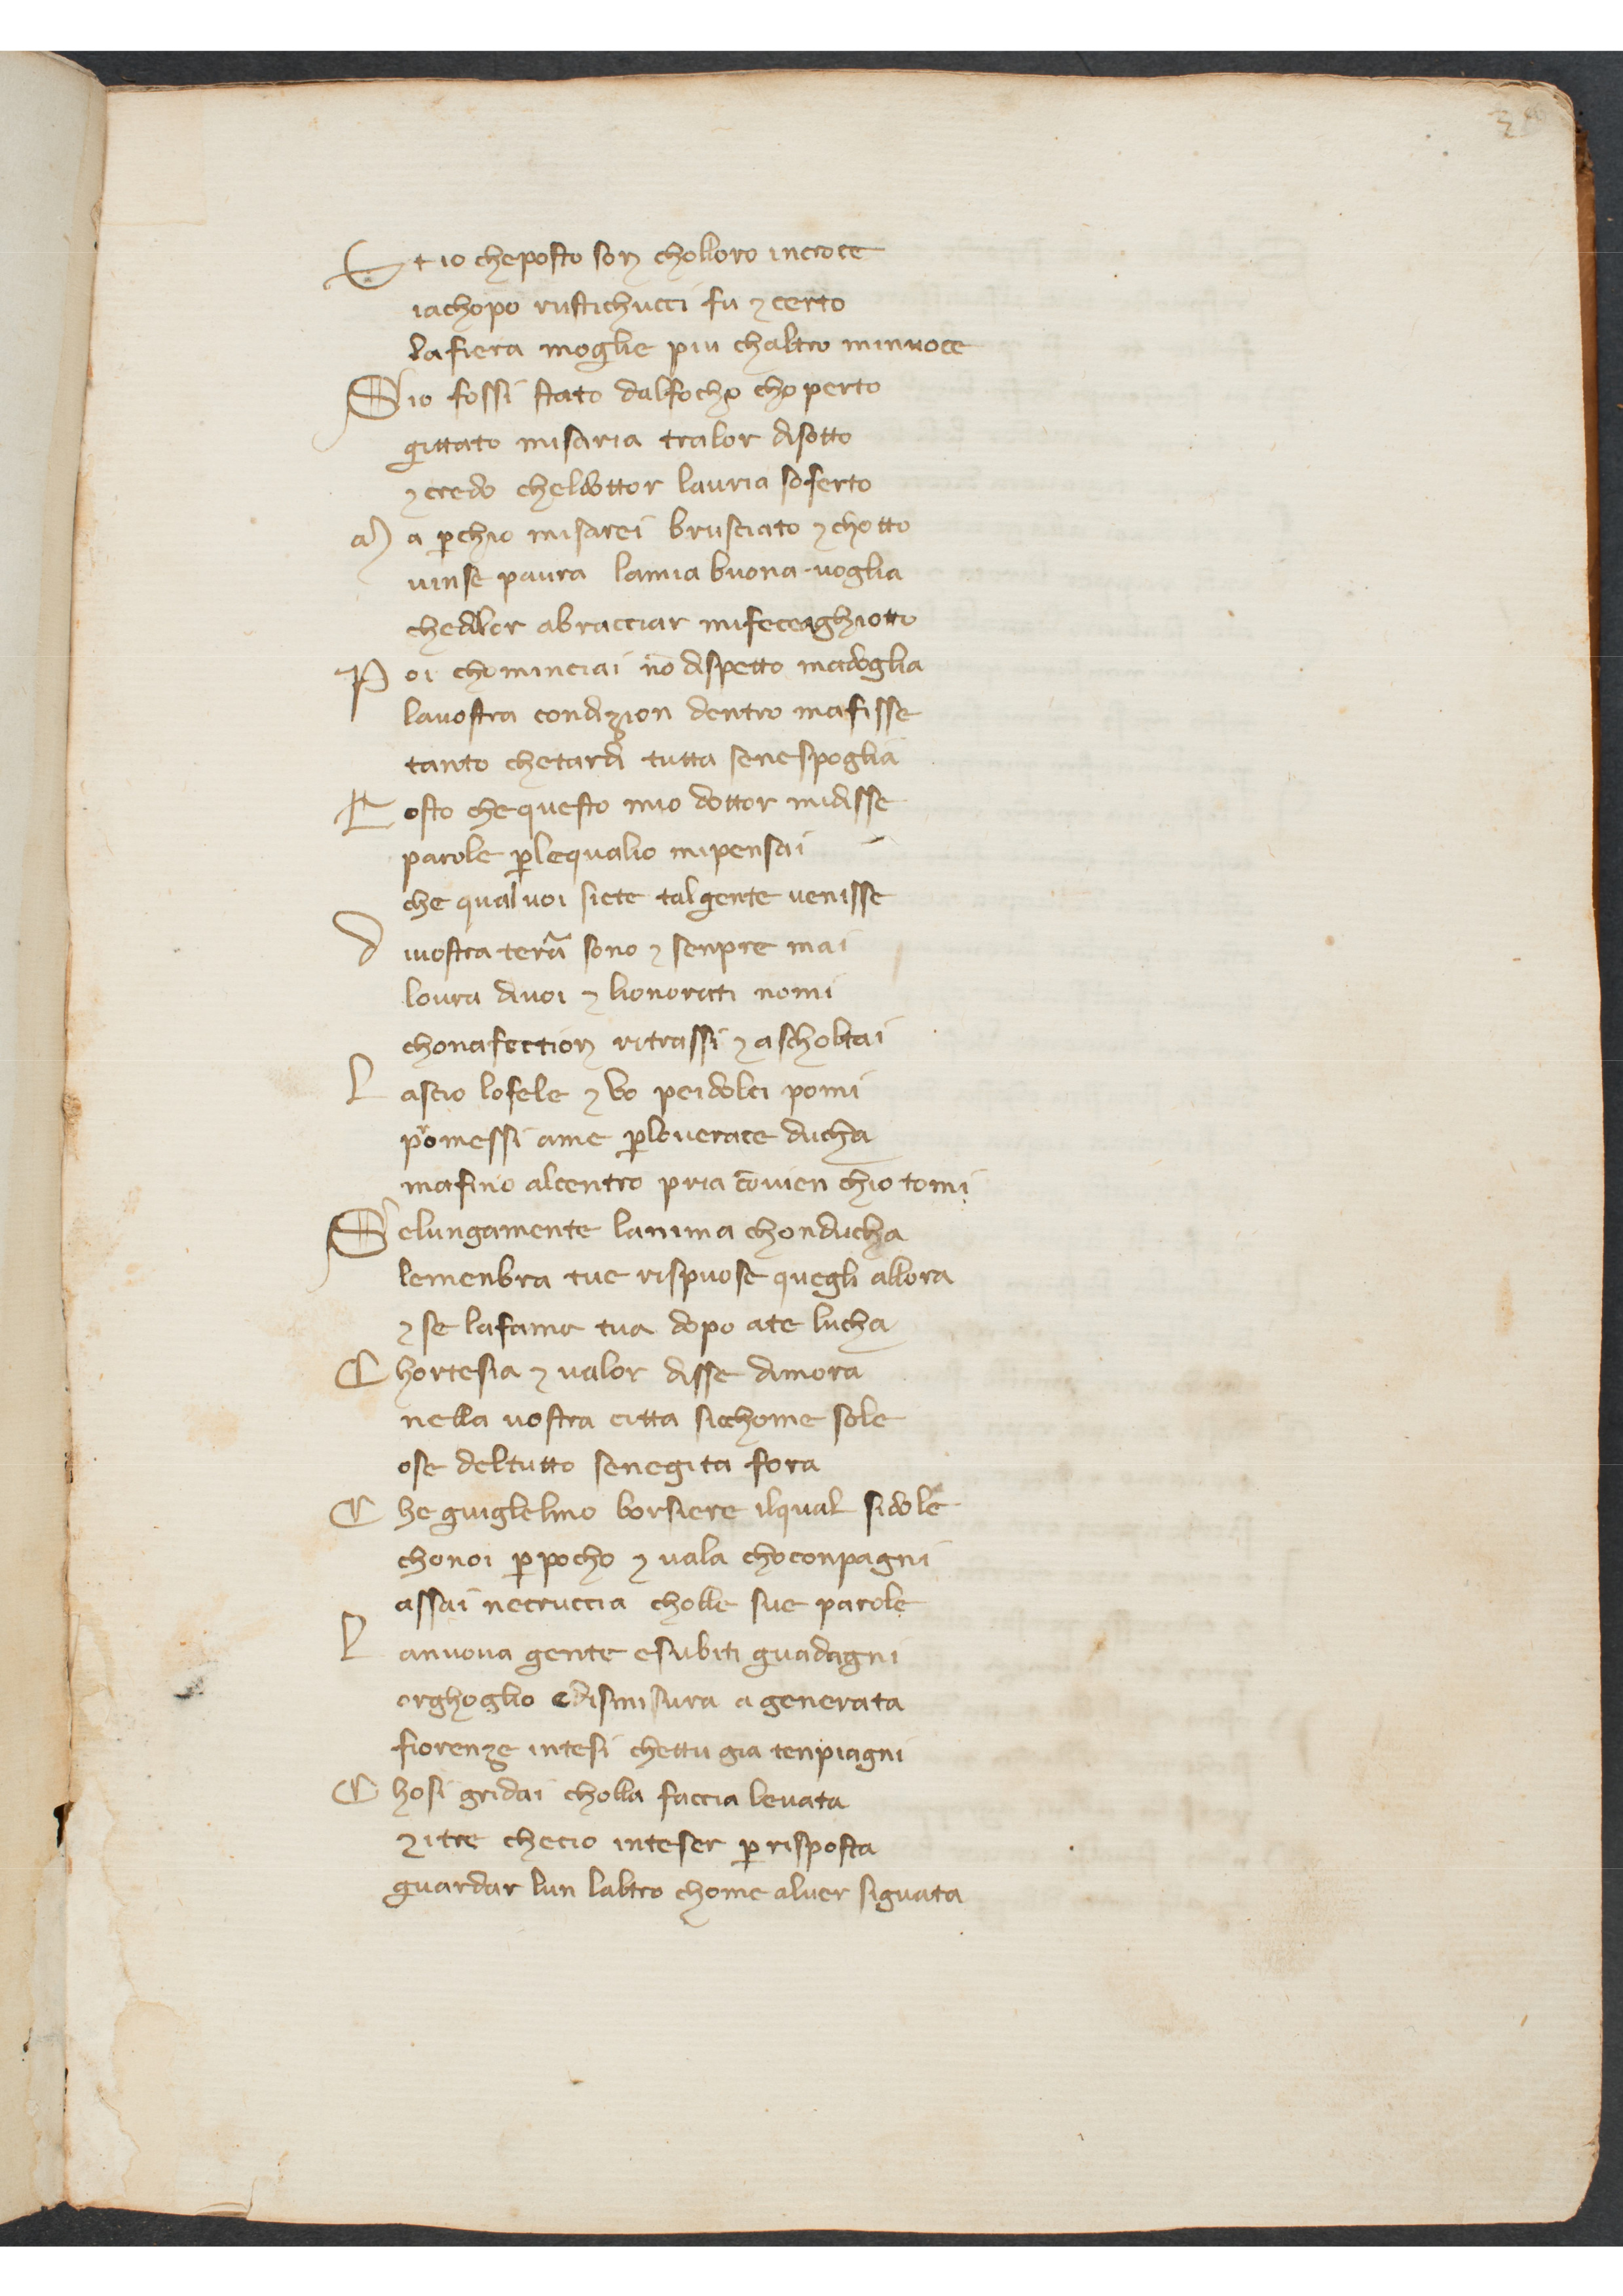 Et io cheposto son cholloro incroce
iachopo rustichucci fu ⁊ certo
la fiera moglie piu chaltro minuoce
Sio fossi stato dalfocho choperto
gittato misaria tralor disotto
⁊ credo cheldottor lauria soferto
Ma ꝑchio misarei brusciato ⁊ chotto
uinse paura lamia buona uoglia
chedilor abracciar mifeceaghiotto
Poi chominciai nō dispetto madoglia
lauostra condizion dentro mafisse
tanto chetardi tutta senespoglia
Tosto chequesto mio dottor midisse
parole ꝑlequalio mipensai
che qual uoi siete tal gente uenisse
Diuostra terra sono ⁊ senpre mai
loura diuoi ⁊ lionorati nomi
chonafection ritrassi ⁊ ascholtai
Lascio lofele ⁊ vo peidolci pomi
promessi ame ꝑloverace ducha
mafino alcentro pria cōuien chio tomi
Selungamente lanima chonducha
lemenbra tue rispuose quegli allora
⁊ se lafama tua dopo ate lucha
Chortesia ⁊ ualor disse dimora
nella uostra citta sicchome sole
ose deltutto senegita fora
Che guiglelmo borsiere ilqual sidole
chonoi ꝑ pocho ⁊ uala choconpagni
assai necruccia cholle sue parole
Lanuoua gente esubiti guadagni
orghoglio edismisura a generata
fiorenze intesi chettu gia tenpiagni
Chosi gridai cholla faccia leuata
⁊ itre checio inteser ꝑ risposta
guardar lun laltro chome aluer siguata